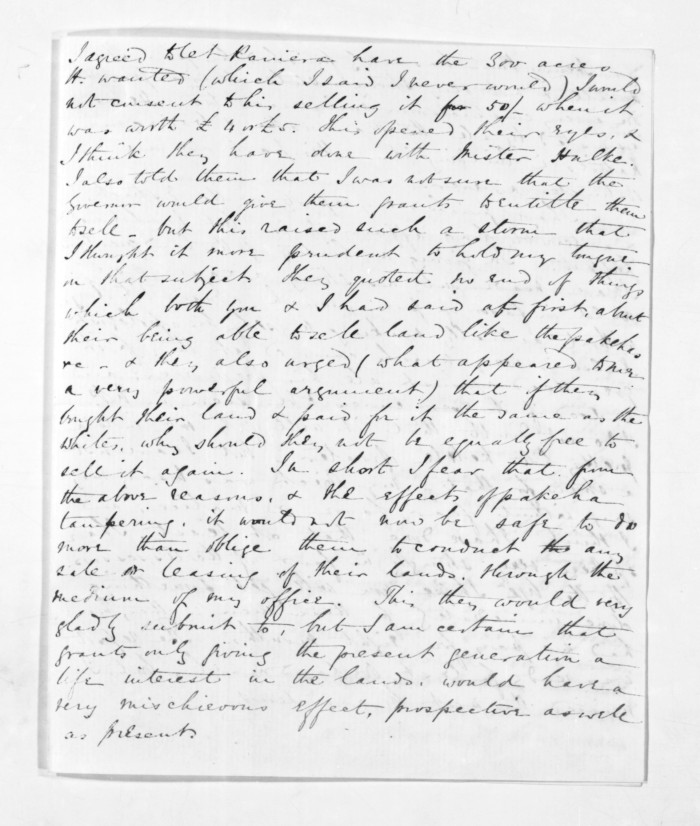 I agreed to let Raniera have the 300 acres
He wanted (which I said I never would) I would
not consent to his selling it for 50/- when it
was worth £4 or £5. This opened their eyes, &
I think they have done with Mister Hulke.
I also told them that I was not sure that the
Governor would give them grants to entitle them
to sell - but this raised such a storm that
I thought it more prudent to hold my tongue
on that subject. They quoted no end of things
which both you & I had said at first, about
their being able to sell land like the pakehas
&c - & they also urged (what appeared to me
a very powerful argument) that if they
bought their land & paid for it the same as the
whites, why should they not be equally free to
sell it again. In short I fear that from
the above reasons, & the effects of pakeha
tampering, it would not now be safe to do
more than oblige them to conduct any
sale or leasing of their lands, through the
medium of my office. This they would very
gladly submit to, but I am certain that
grants only giving the present generation a
life interest in the lands, would have a
very mischievous effect, prospective as well
as present.